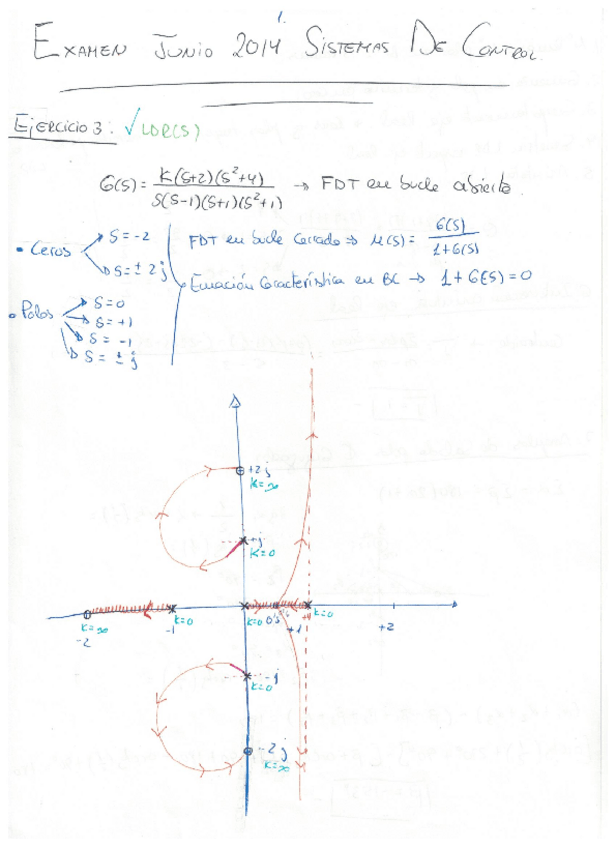 1.
EXAMEN JUNIO 2014 SISTEMAS DE CONTROL.
EJERCICIO 3: √ LDR(S)
G(S) = K(S+2)(S²+4) / S(S-1)(S+1)(S²+1) → FDT en bucle abierto.
• Ceros → S = -2
→ S = ± 2j
FDT en bucle Cerrado ⇒ M(S) = G(S) / 1+G(S)
Ecuación Característica en BC → 1 + G(S) = 0
• Polos → S = 0
→ S = +1
→ S = -1
→ S = ± j
+2j
K=∞
+j
K=0
K=∞
-2
K=0
-1
K=0
+1
K=0
+2
-j
K=0
-2j
K=∞